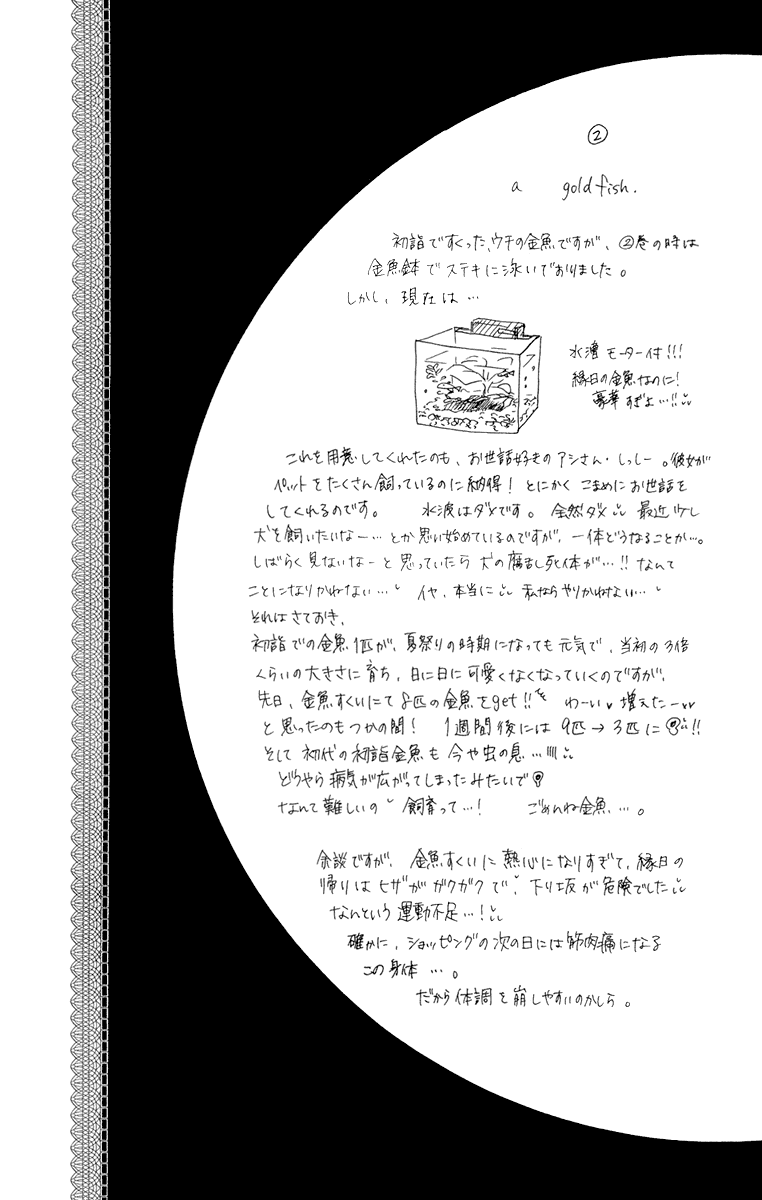 ②
a goldfish.
初詣ですくった、ウチの金魚ですが、②巻の時は
金魚鉢でステキに泳いでおりました。
しかし、現在は…
水濾モーター付!!!
縁日の金魚なのに!
豪華すぎよ…!!
これを用意してくれたのも、お世話好きのアシさん・しっしー。彼女が
ペットをたくさん飼っているのに納得!とにかくこまめにお世話を
してくれるのです。 水波はダメです。全然ダメ 最近少し
犬を飼いたいなー…とか思い始めているのですが、一体どうなることか…。
しばらく見ないなーと思っていたら犬の腐乱死体が…!!なんて
ことになりかねない… イヤ、本当に 私ならやりかねない…
それはさておき、
初詣での金魚1匹が、夏祭りの時期になっても元気で、当初の3倍
くらいの大きさに育ち、日に日に可愛くなくなっていくのですが、
先日、金魚すくいにて8匹の金魚をget!! わーい♥増えたー♥♥
と思ったのもつかの間! 1週間後には9匹→3匹に!!
そして初代の初詣金魚も今や虫の息…
どうやら病気が広がってしまったみたいで
なんて難しいの 飼育って…! ごめんね金魚…。
余談ですが、金魚すくいに熱心になりすぎて、縁日の
帰りはヒザがガクガクで、下り坂が危険でした
なんという運動不足…!
確かに、ショッピングの次の日には筋肉痛になる
この身体…。
だから体調を崩しやすいのかしら。